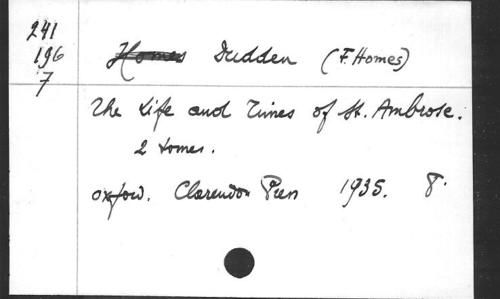 241
196
7
Homes Dudden (F. Homes)
The Life and Times of St. Ambrose.
2 tomes.
Oxford. Clarendon Press 1935. 8°